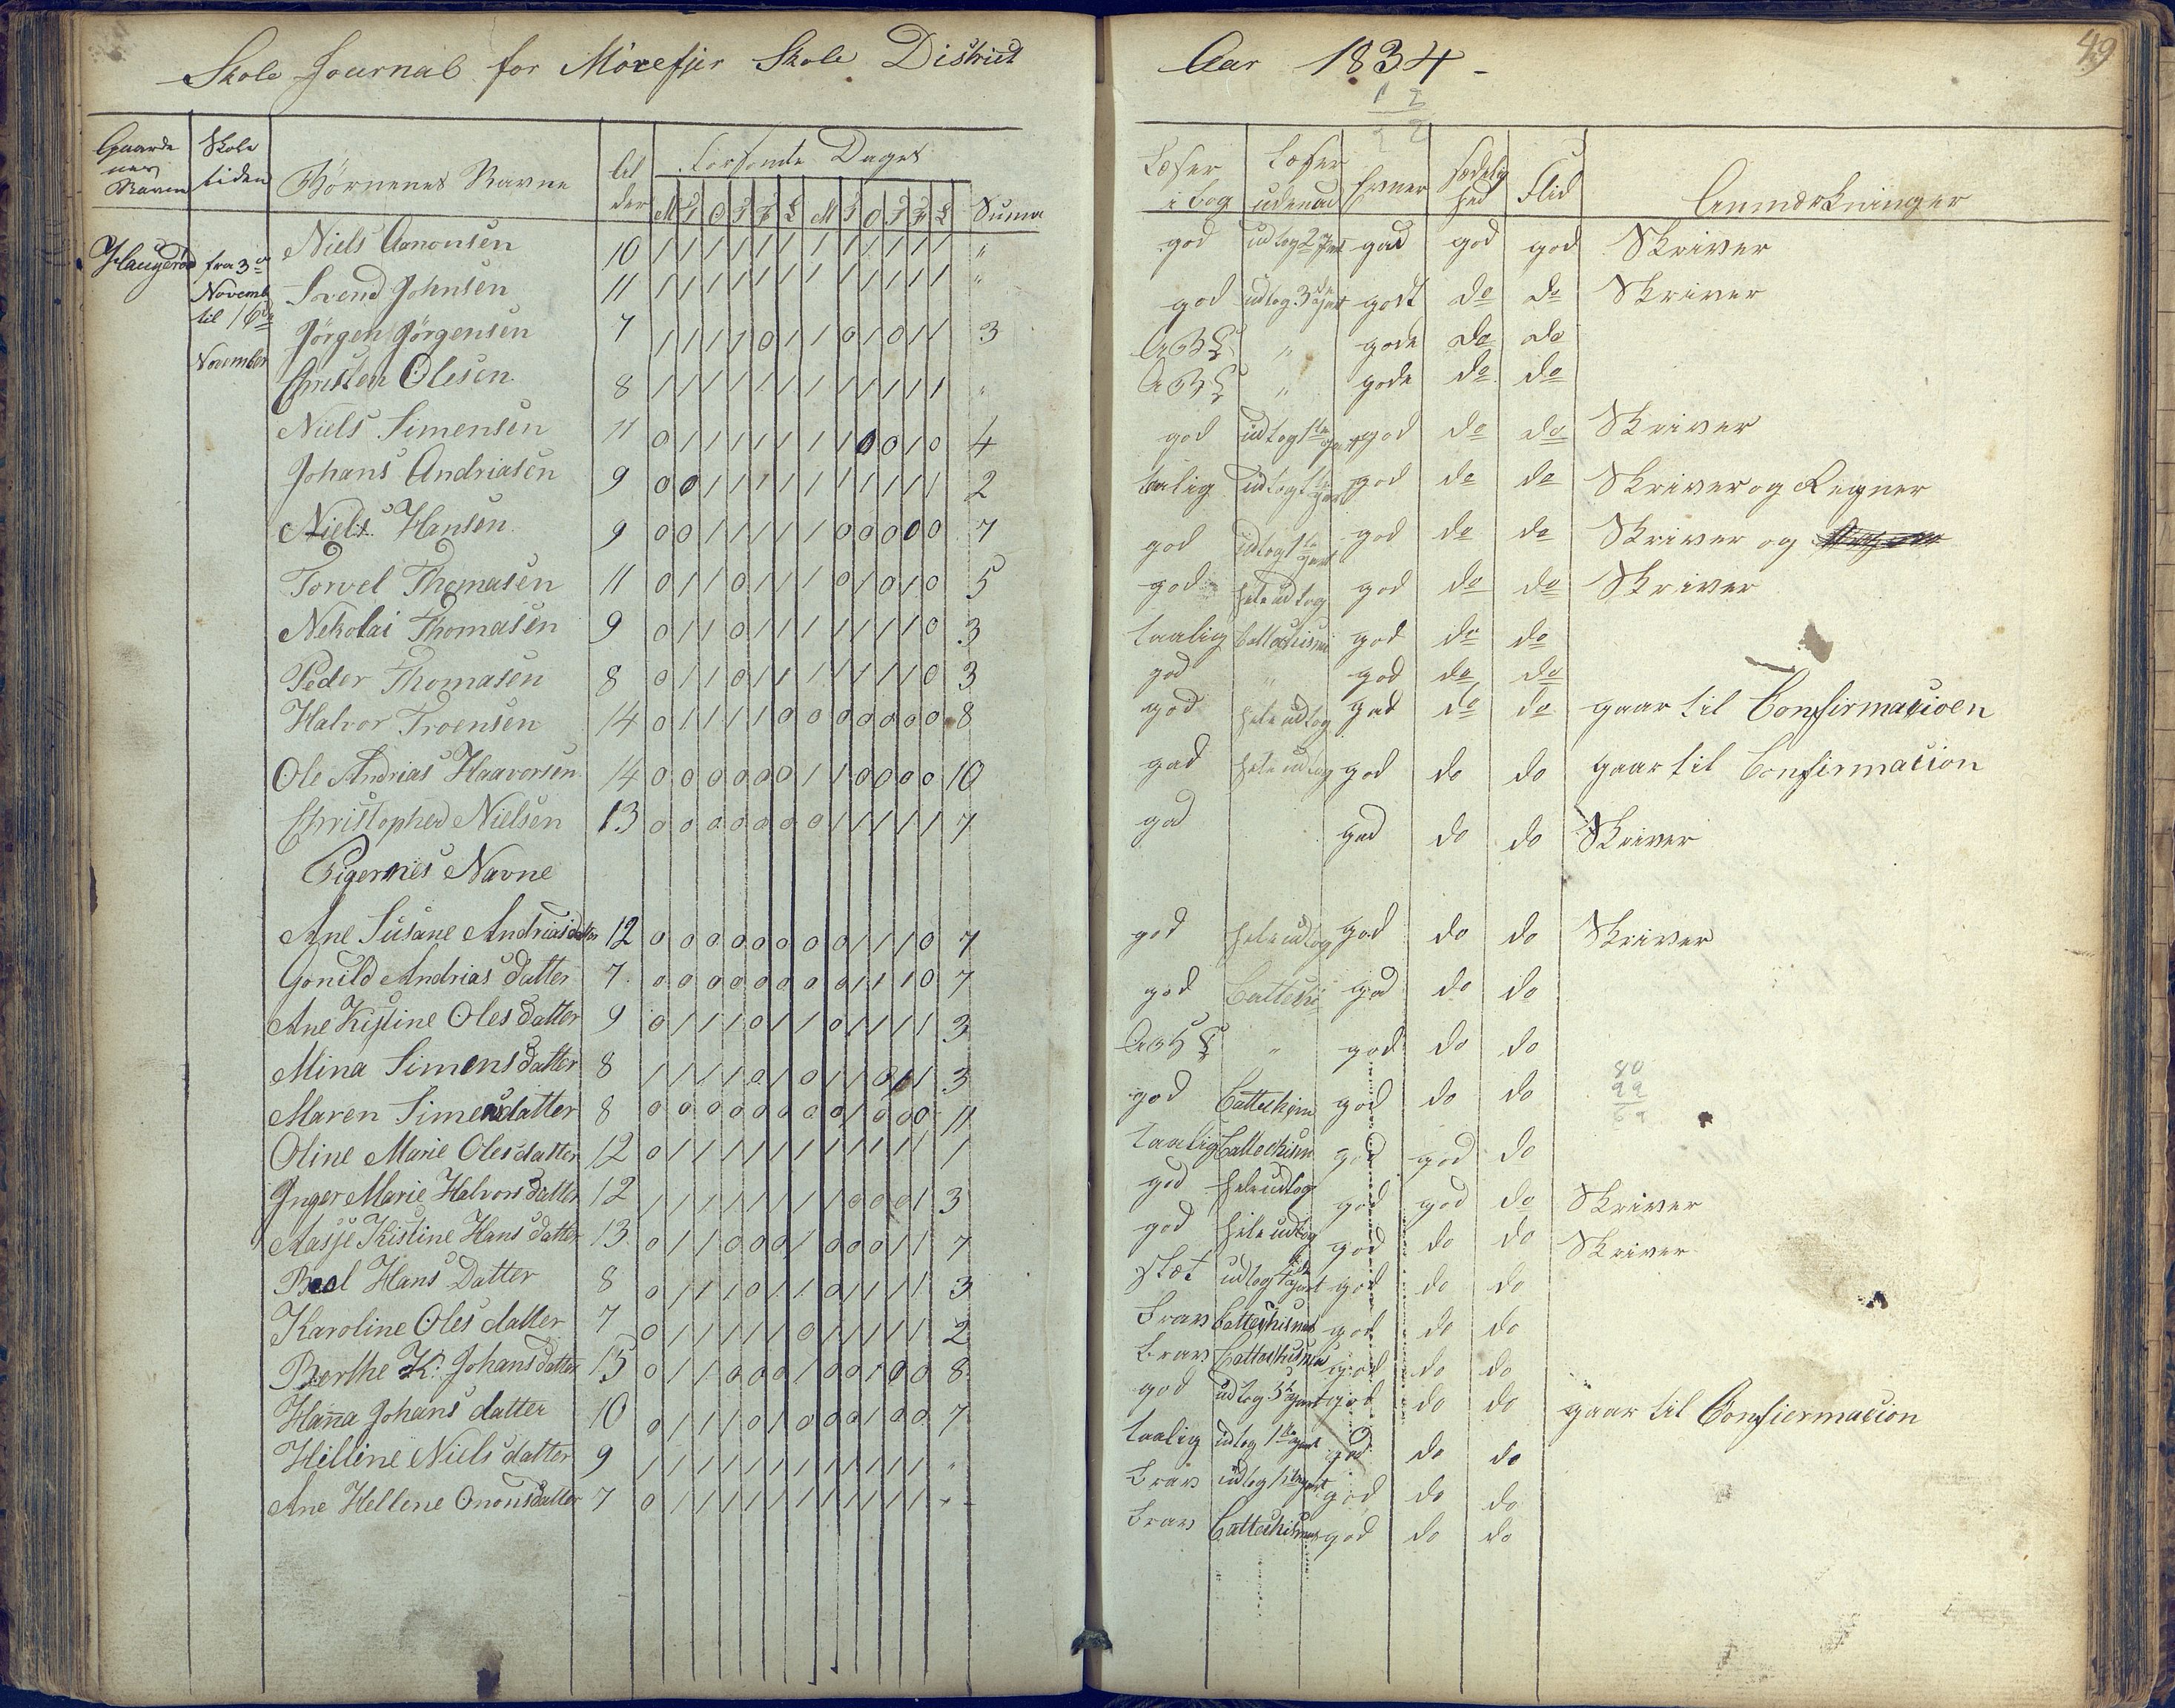 Skole Journal for Mörefjer Skole District Aar 1834 -
49
Gaardenes Navn Skole tiden Börnenes Navne Alder forsömte Dage Summa Læser i bog Læser udenad Evner Sædelighed Flid Anmærkninger
M T O T F L M T O T F L
Haugerød fra 3de Novemb til 16de November
Niels Aanonsen 10 / / / / / / / / / / / / " god udtog 2 Part god god god Skriver
Svend Johnsen 11 / / / / / / / / / / / / " god udtog 3de Part godt do do Skriver
Jörgen Jörgensen 7 / / / / 0 / / 0 / 0 / / 3 ABC " gode do do
Christen Olesen 8 / / / / / / / / / / / / " ABC " gode do do
Niels Simensen 11 0 / / / / / / / 0 0 / 0 4 god udtog 1ste part god do do Skriver
Johans Andriasen 9 0 0 / / / / / / / / / / 2 taalig udtog 1ste part god do do Skriver og Regner
Niels Hansen 9 0 0 / / / / / 0 0 0 0 0 7 god udtog 1ste part god do do Skriver og
Torvel Thomasen 11 0 / / 0 / / / 0 / 0 / 0 5 god hele udtog god do do Skriver
Nekolai Thomasen 9 0 / / 0 / / / / / / / 0 3 taalig Cattechismi god do do
Peder Thomasen 8 0 / / 0 / / / / / / / 0 3 god " god do do
Halvor Troensen 14 0 / / / / 0 0 0 0 0 0 0 8 god hele udtog god do do gaar til Confirmacioen
Ole Andrias Haavorsen 14 0 0 0 0 0 0 / / 0 0 0 0 10 god hele udtog god do do gaar til Confirmacion
Christopher Nielsen 13 0 0 0 0 0 0 0 / / / / / 7 god god do do Skriver
Pigernes Navne
Ane Susane Andriasdatter 12 0 0 0 0 0 0 0 0 / / / 0 7 god hele udtog god do do Skriver
Gonild Andrias datter 7 0 0 0 0 0 0 0 0 / / / 0 7 god Catteshi god do do
Ane Kistine Oles datter 9 0 / / / 0 / / 0 / / / / 3 ABC " god do do
Mina Simens datter 8 / / / / 0 / 0 / / 0 / / 3 god Cattechism god do do
Maren Simensdatter 8 0 0 0 0 0 0 0 0 / 0 0 0 11 taalig Cattechism god god do
Oline Marie Olesdatter 12 0 / / / / / / / / / / / 1 god hele udtog god god do Skriver
Inger Marie Halvors datter 12 / / / / / / / / 0 0 0 / 3 god hele udtog god do do Skriver
Aasje Kistine Hans datter 13 0 / / 0 0 0 / 0 0 0 / / 7 slet udtog 1ste part god do do
Beel Hans Datter 8 0 / / / 0 / / 0 / / / / 3 brav Cattechismus god do do
Karoline Oles datter 7 0 / / / / / 0 / / / / / 2 brav Cattechismus god do do
Berthe K: Johans datter 15 0 / / 0 0 0 / 0 0 / 0 0 8 god udtog 3de part god do do gaar til Confiermacion
Hanna Johans datter 10 0 / / / 0 / 0 0 0 / 0 0 7 taalig udtog 1ste part god do do
Hilline Niels datter 9 / / / / / / / / / / / / " brav udtog 1ste part god do do
Ane Hellene Ononsdatter 7 0 / / / / / / / / / / / brav Cattechismus god do do